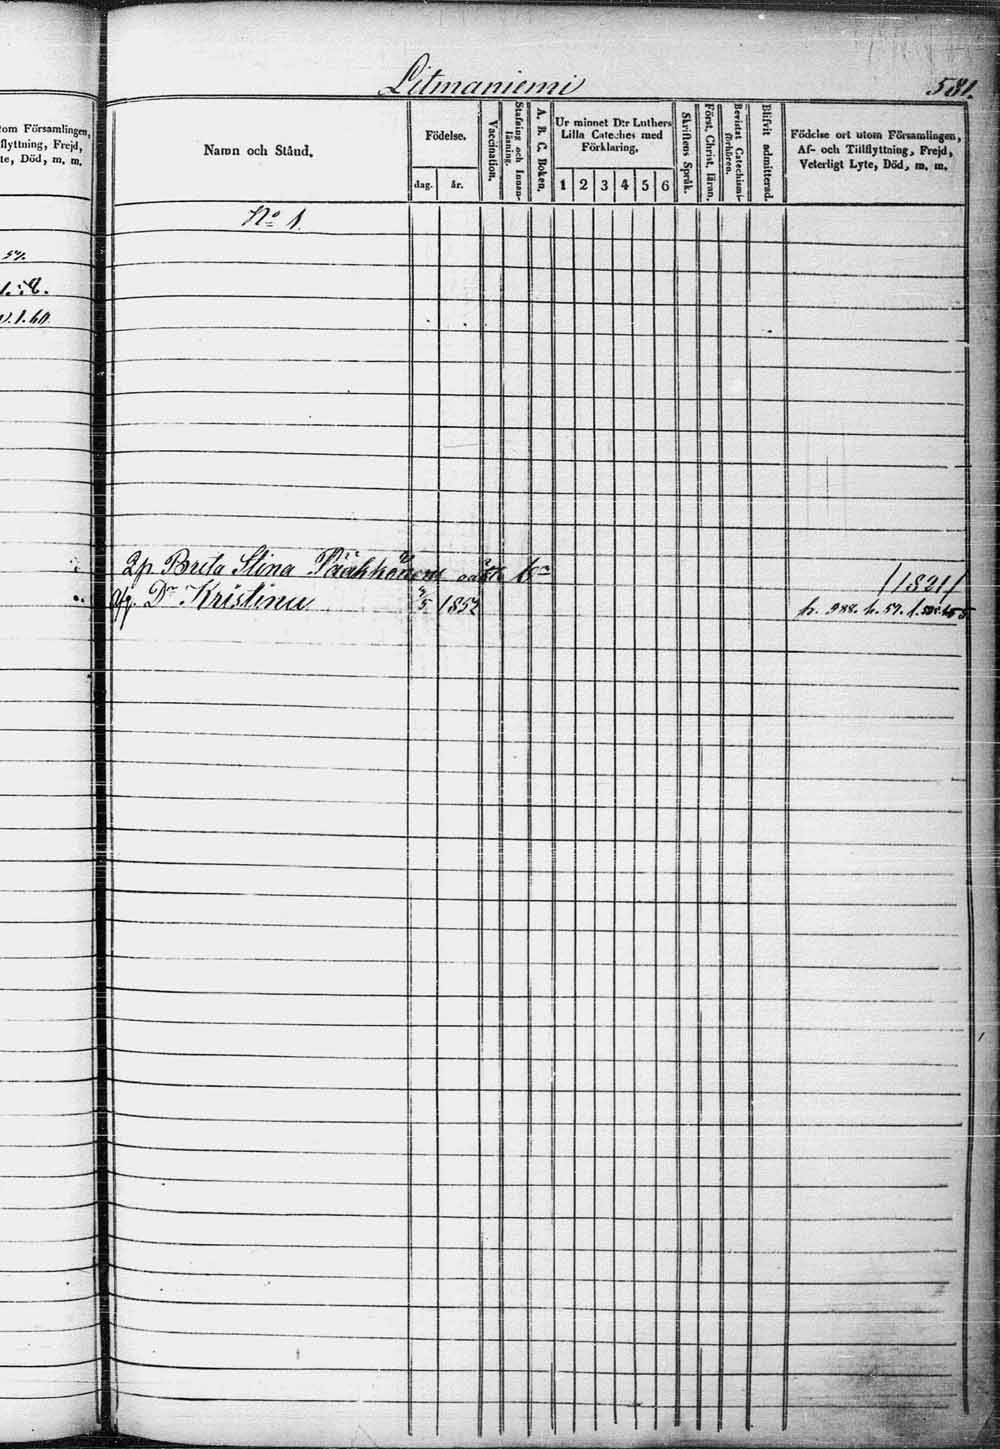 Litmaniemi
581.
tom Församlingen,
flyttning, Frejd,
te, Död, m. m.
Namn och Stånd.
Födelse.
dag.
år.
Vaccination.
Stafning och Innan-
läsning.
A. B. C. Boken.
Ur minnet D:r Luthers
Lilla Cateches med
Förklaring.
1 2 3 4 5 6
Skriftens Språk.
Först, Christ. läran.
Bevistat Catechismi-
förhören.
Blifvit admitterad.
Födelse ort utom Församlingen,
Af- och Tillflyttning, Frejd,
Veterligt Lyte, Död, m. m.
No 1.
57.
1.58.
1.60
Brita Stina Pääkkönen
/1821/
Dr Kristina 5 1852
h. 57.